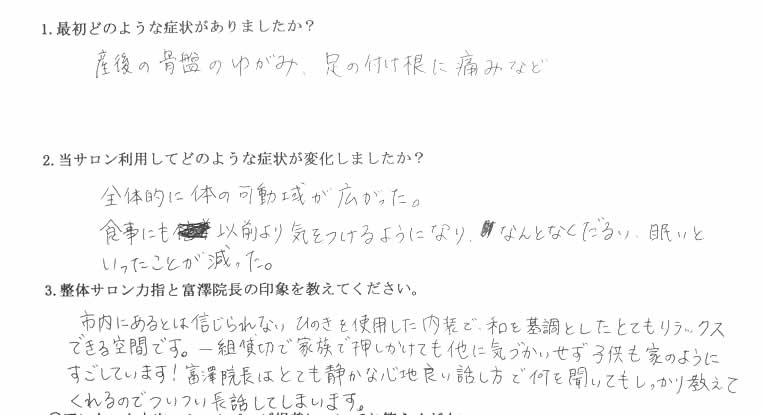 1. 最初どのような症状がありましたか？
産後の骨盤のゆがみ、足の付け根に痛みなど
2. 当サロン利用してどのような症状が変化しましたか？
全体的に体の可動域が広がった。
食事にも以前より気をつけるようになり、なんとなくだるい、眠いと
いったことが減った。
3. 整体サロン力指と富澤院長の印象を教えてください。
市内にあるとは信じられないひのきを使用した内装で、和を基調としたとてもリラックス
できる空間です。一組貸切で家族で押しかけても他に気づかいせず子供も家のように
すごしています！富澤院長はとても静かな心地良い話し方で何を聞いてもしっかり教えて
くれるのでついつい長話してしまいます。